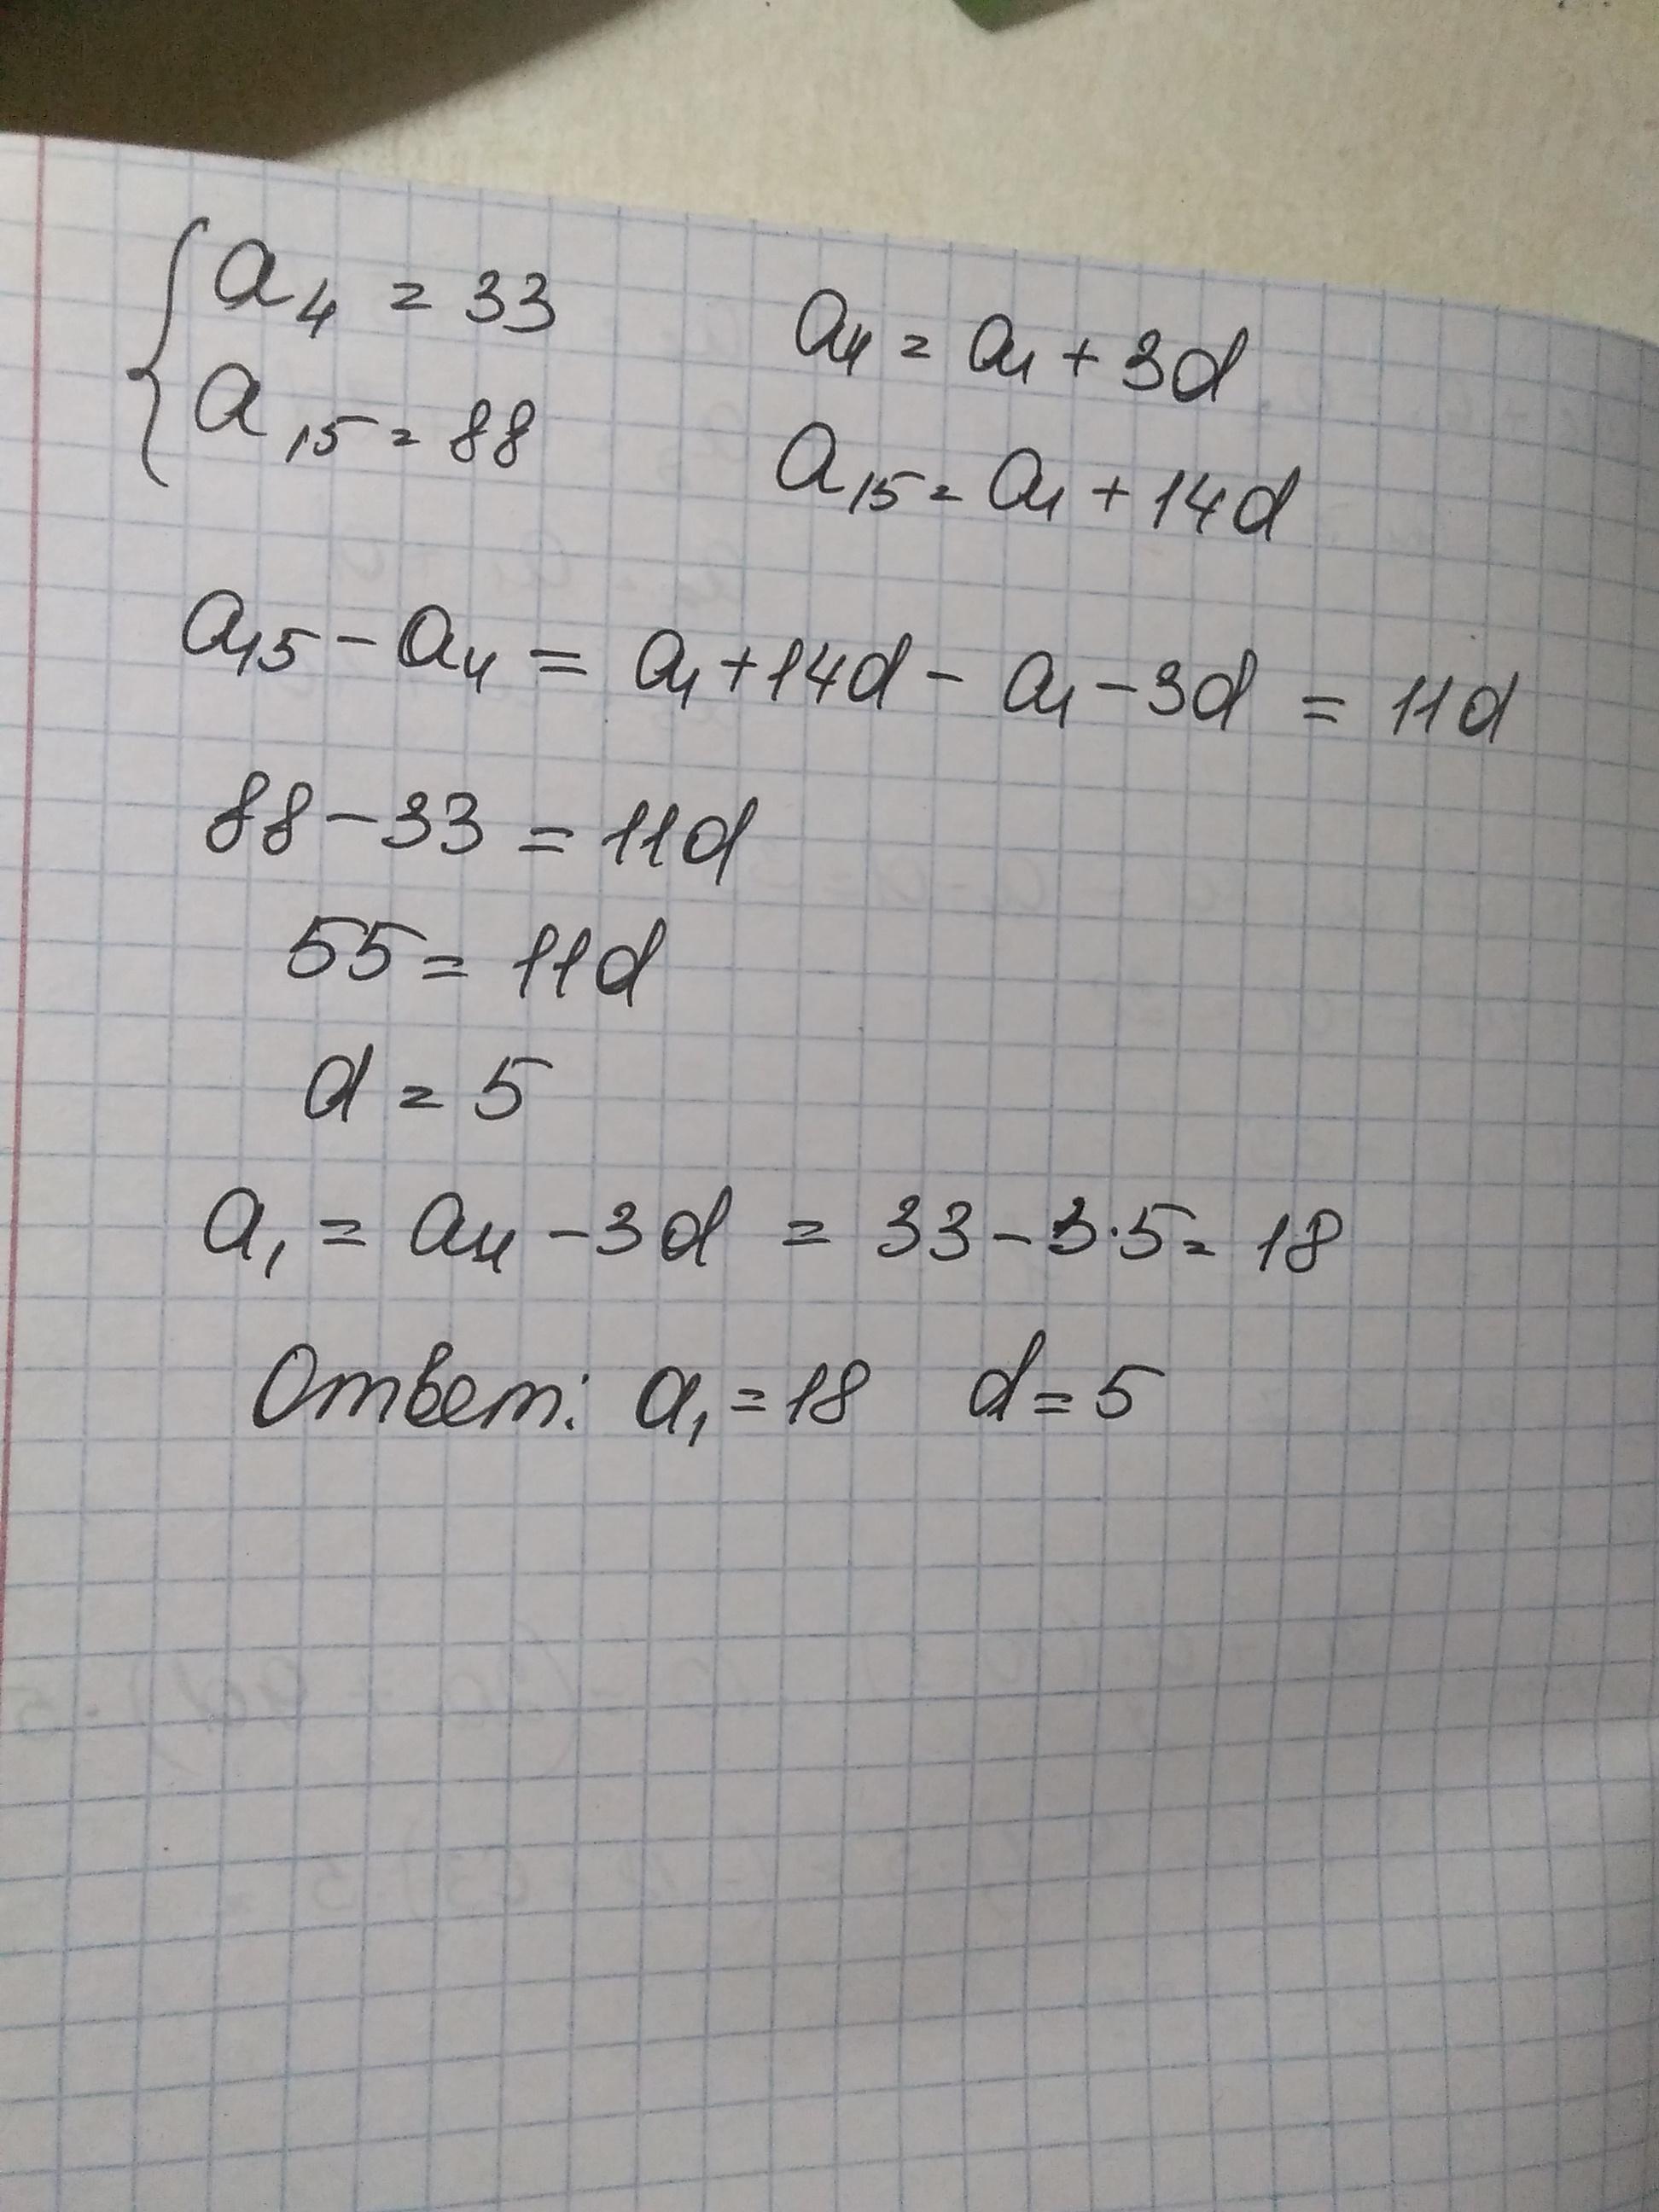 a₄ = 33 a₄ = a₁ + 3d
a₁₅ = 88 a₁₅ = a₁ + 14d
a₁₅ - a₄ = a₁ + 14d - a₁ - 3d = 11d
88 - 33 = 11d
55 = 11d
d = 5
a₁ = a₄ - 3d = 33 - 3·5 = 18
Ответ: a₁ = 18 d = 5